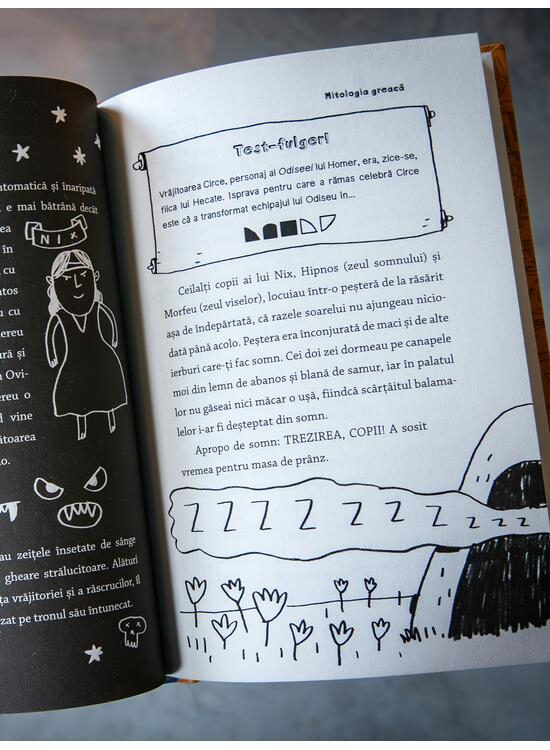 ntomatică și înaripată
e mai bătrână decât
ea
NIX
în
cu
tos
u cu
ereu
ară și
n Ovi-
ereu o
d vine
ătoarea
o.
au zeițele însetate de sânge
gheare strălucitoare. Alături
ța vrăjitoriei și a răscrucilor, îl
zat pe tronul său întunecat.
Mitologia greacă
Test-fulger!
Vrăjitoarea Circe, personaj al Odiseei lui Homer, era, zice-se,
fiica lui Hecate. Isprava pentru care a rămas celebră Circe
este că a transformat echipajul lui Odiseu în...
Ceilalți copii ai lui Nix, Hipnos (zeul somnului) și
Morfeu (zeul viselor), locuiau într-o peșteră de la răsărit
așa de îndepărtată, că razele soarelui nu ajungeau nicio-
dată până acolo. Peștera era înconjurată de maci și de alte
ierburi care-ți fac somn. Cei doi zei dormeau pe canapele
moi din lemn de abanos și blană de samur, iar în palatul
lor nu găseai nici măcar o ușă, fiindcă scârțâitul balama-
lelor i-ar fi deșteptat din somn.
Apropo de somn: TREZIREA, COPII! A sosit
vremea pentru masa de prânz.
Z Z Z Z Z Z Z Z Z Z